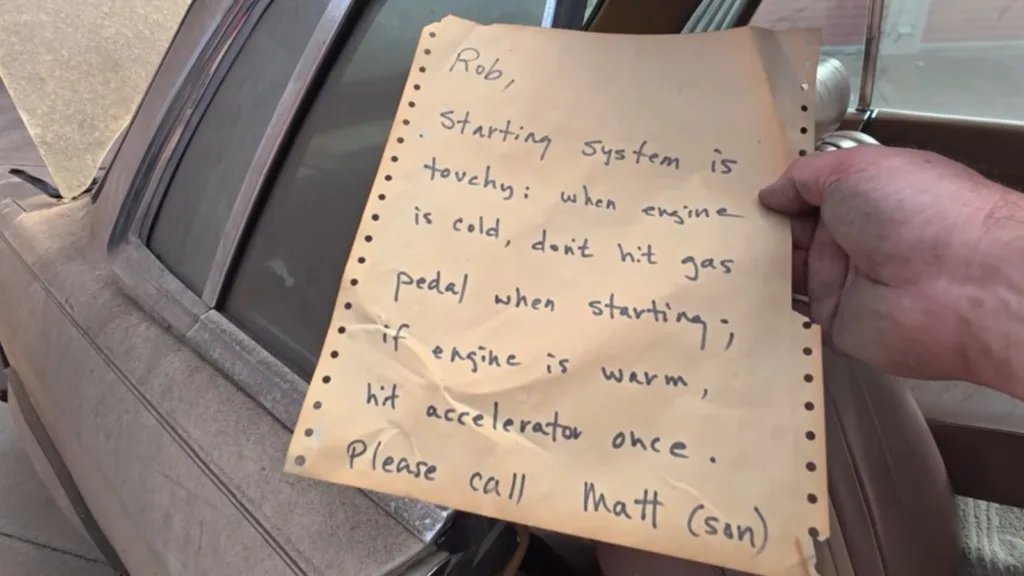 Rob,
Starting system is
touchy: when engine
is cold, don't hit gas
pedal when starting;
if engine is warm,
hit accelerator once.
Please call Matt (son)